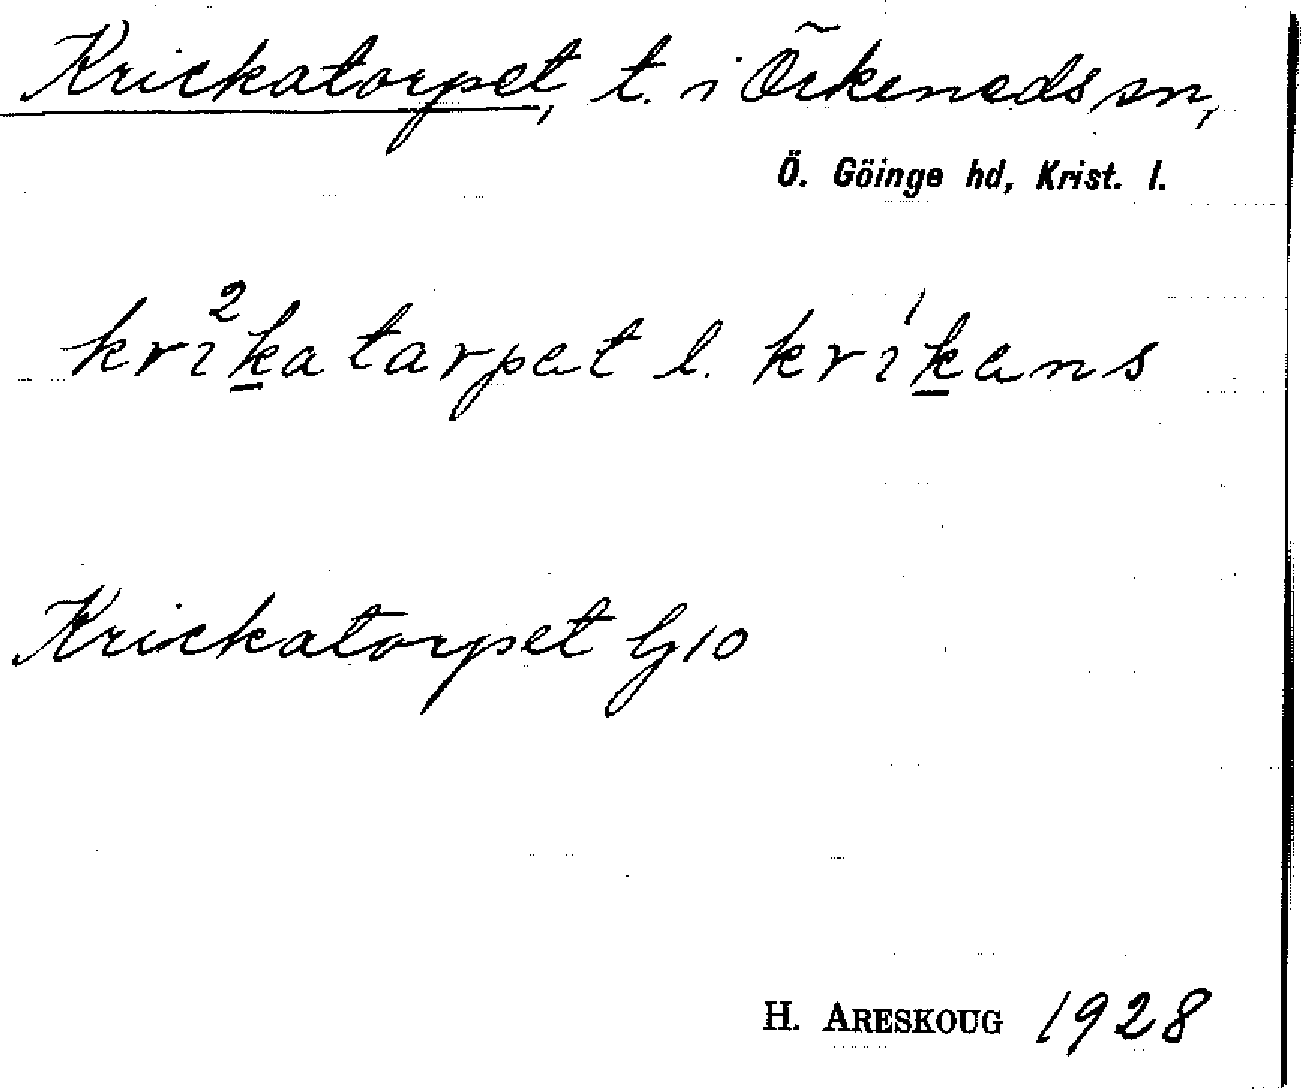 Krickatorpet, t. i Örkeneds sn,
Ö. Göinge hd, Krist. l.
kri²katarpet l. kri¹kans
Krickatorpet G10
H. ARESKOUG 1928